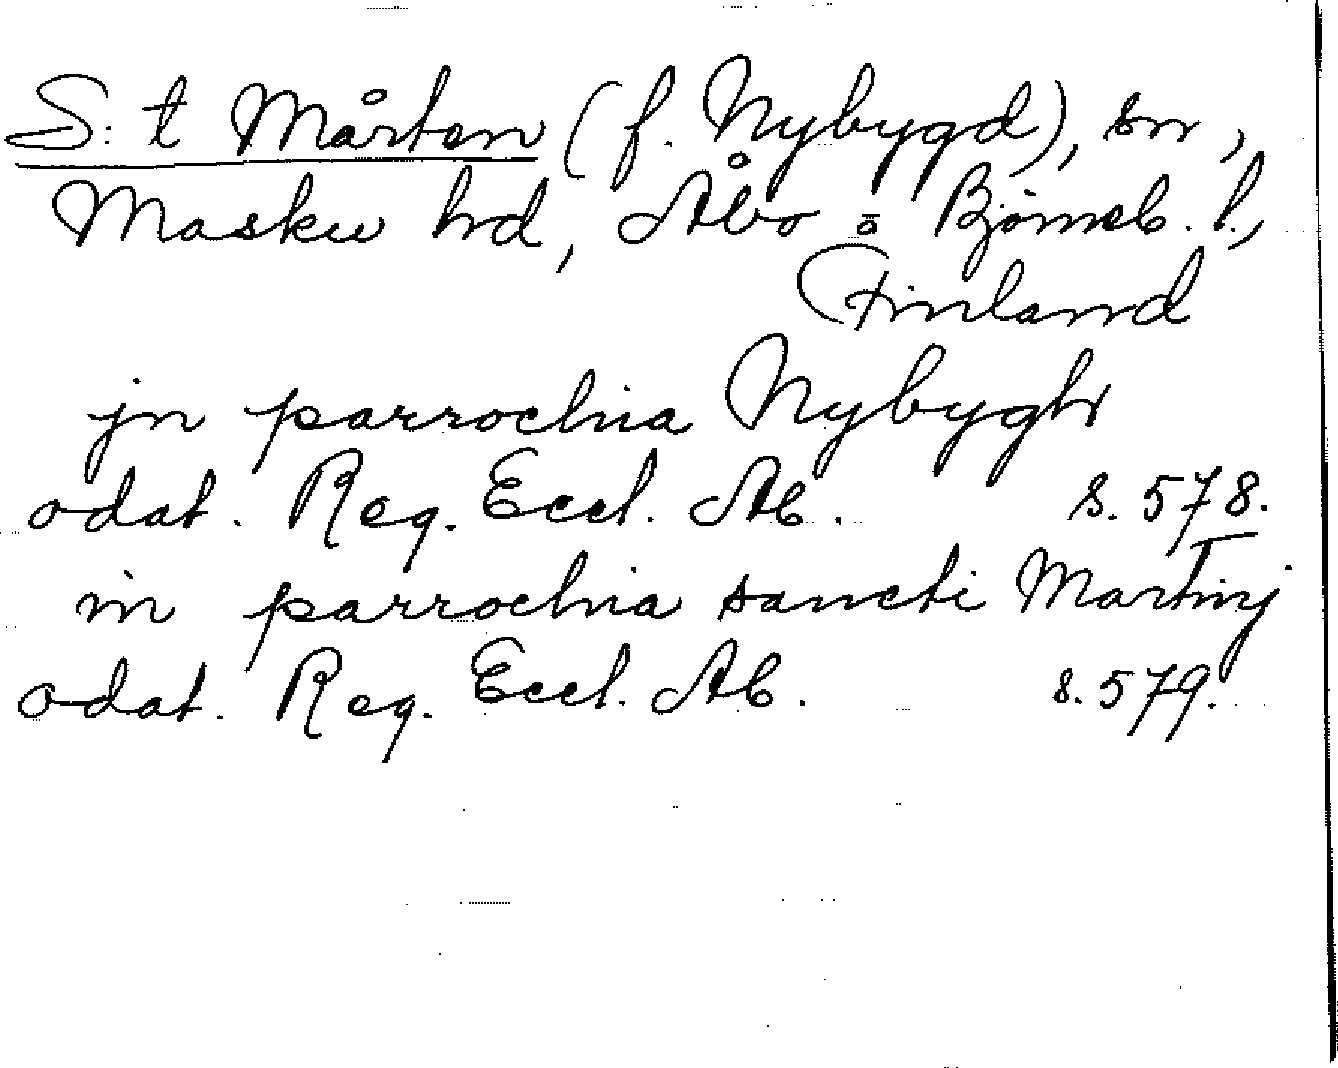 S:t Mårten (f. Nybygd), sn,
Masku hd, Åbo o Björneb. l.,
Finland
jn parrochia Nybygh
odat. Reg. Eccl. Ab. s. 578.
in parrochia sancti Martinj
odat. Reg. Eccl. Ab. s. 579.